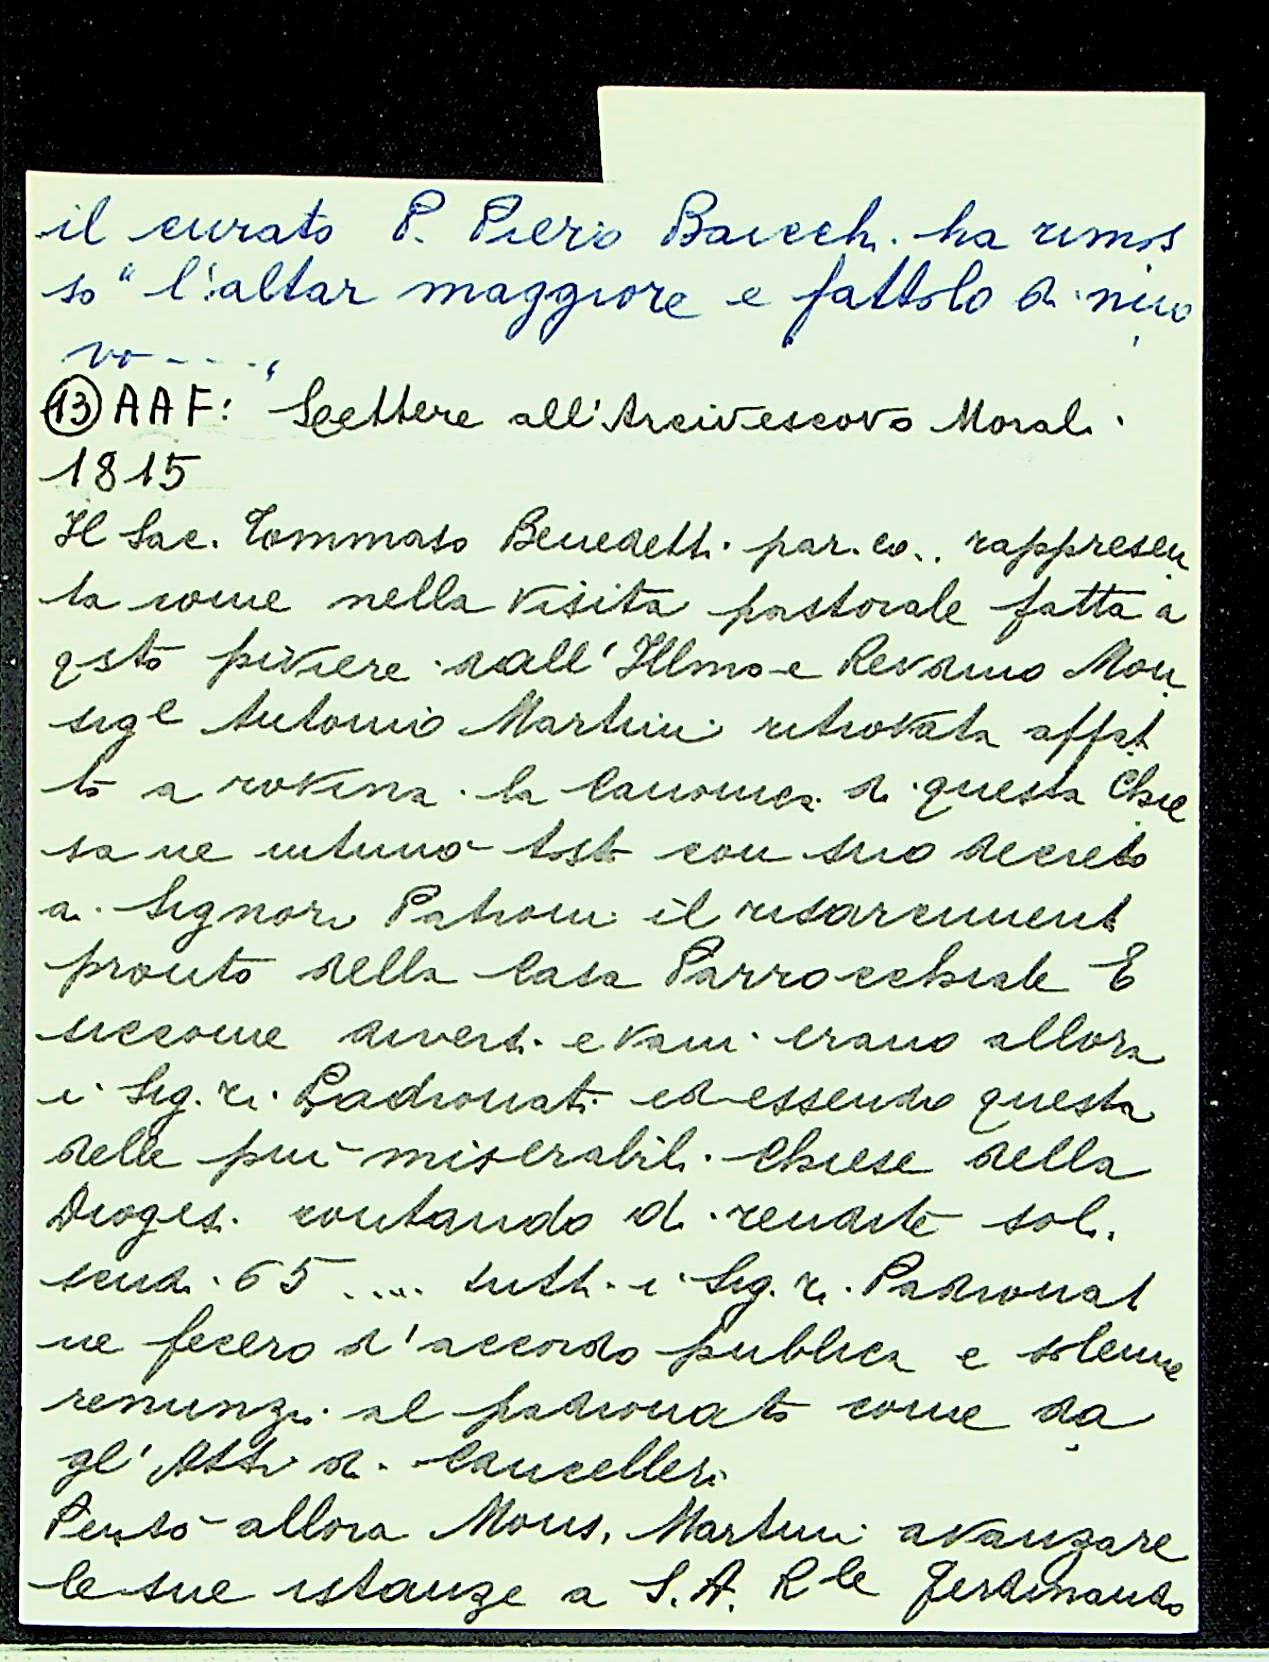 il curato P. Piero Baicchi ha rimos
so "l'altar maggiore e fattolo di nuo
vo - - - "
(13) AAF: Lettere all'Arcivescovo Morali
1815
Il Sac. Tommaso Benedetti par.co.. rappresen
ta come nella visita pastorale fatta a
qsto piviere dall'Illmo e Revdmo Mon
sige Antonio Martini ritrovata affat
to a rovina la Canonica di questa Chie
sa ne intimò tosto con suo decreto
ai Signori Patroni il risarciment
pronto della Casa Parrocchiale E
siccome diversi e vari erano allora
i Sig.ri Padronati ed essendo questa
delle più miserabili Chiese della
Diogesi contando di rendite soli
scudi 65 .... tutti i Sig.ri Padronat
ne fecero d'accordo pubblica e solenne
renunzi al padronato come da
gl'Atti di Cancelleri
Pensò allora Mons. Martini avanzare
le sue istanze a S.A. Rle Ferdinando